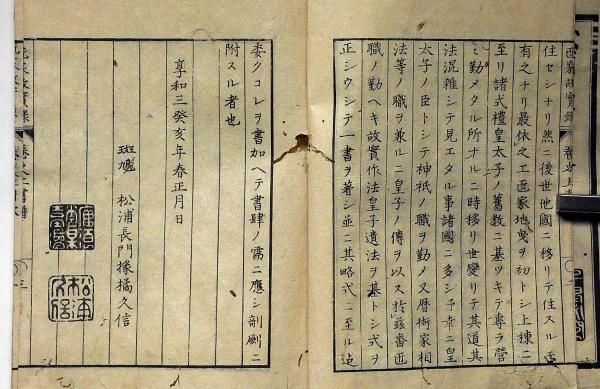 住セシナリ然ニ後世他國ニ移リテ住スル
有之ナリ最依之工匠家地曳ヲ初トシ上棟ニ
至リ諸式禮皇太子ノ舊教ニ基ツキテ專ラ營
ミ勤メタル所ナルニ時移リ世變リテ其道其
法混雜シテ見エタル事諸國ニ多シ予幸ニ皇
太子ノ臣トシテ神祇ノ職ヲ勤メ又曆術家相
法等ノ職ヲ兼ルニ皇子ノ傳ヲ以ス於茲番匠
職ノ勤ヘキ故實作法皇子遺法ヲ基トシ式ヲ
正シウシテ一書ヲ著シ並ニ其略式ニ至ル迠
委クコレヲ書加ヘテ書肆ノ需ニ應シ剞劂ニ
附スル者也
享和三癸亥年春正月日
斑鳩 松浦長門掾橘久信